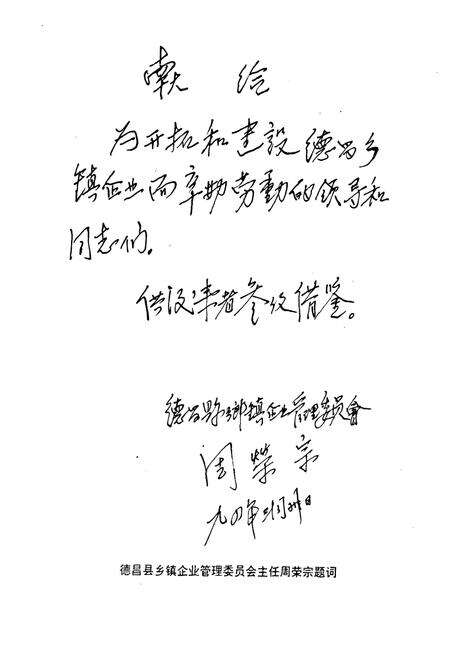 献给
为开拓和建设德昌乡
镇企业而辛勤劳動的领导和
同志们。
供后来者参考借鉴。
德昌县乡镇企业管理委員會
周榮宗
九四年二月廿八日
德昌县乡镇企业管理委员会主任周荣宗题词